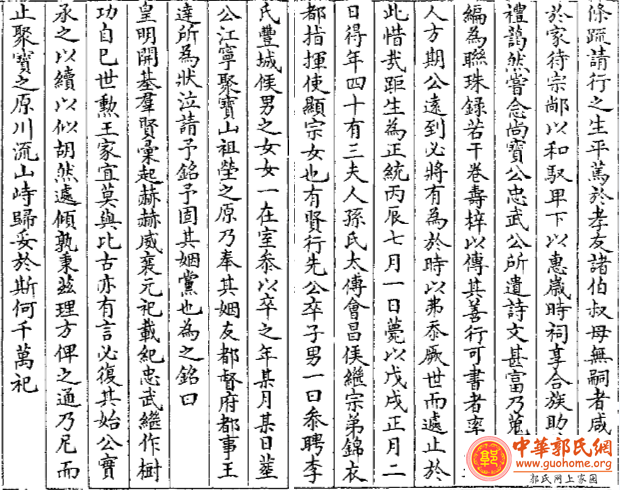 條疏請行之生平篤於孝友諸伯叔母無嗣者咸
於家待宗鄰以和馭卑下以惠歲時祠享合族助
禮藹然嘗念尚寶公忠武公所遺詩文甚富乃蒐
編為聯珠錄若干卷壽梓以傳其善行可書者率
人方期公遠到必將有為於時以弗忝厥世而遽止於
此惜哉距生為正統丙辰七月一日薨以戊戌正月二
日得年四十有三夫人孫氏太傅會昌侯繼宗弟錦衣
都指揮使顯宗女也有賢行先公卒子男一曰泰聘李
氏豐城侯男之女女一在室泰以卒之年某月某日葬
公江寧聚寶山祖塋之原乃奉其姻友都督府都事王
達所為狀泣請予銘予固其姻黨也為之銘曰
皇明開基羣賢彙起赫赫威襄元祀載紀忠武繼作樹
功自巳世勲王家宜莫與比古亦有言必復其始公實
承之以續以似胡然遽傾孰秉茲理方俾之通乃尼而
止聚寶之原川流山峙歸妥於斯何千萬祀
中華郭氏網
www.guohome.org
郭氏网上家園